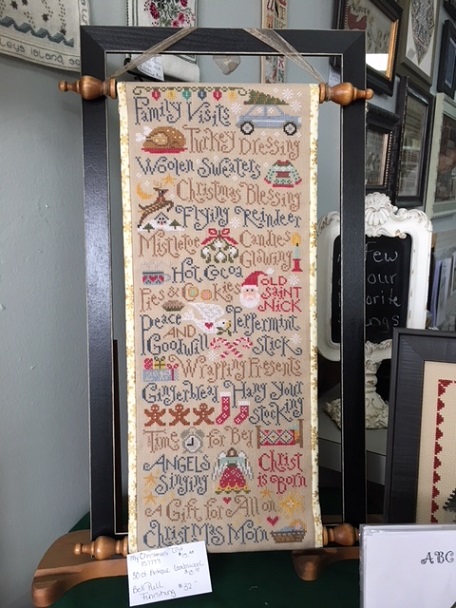 leys island
Family Visits
Turkey Dressing
Woolen Sweaters
Christmas Blessing
Flying Reindeer
Mistletoe Candles
Glowing
Hot Cocoa
Pies & Cookies
Old
Saint
Nick
Peace
and
Goodwill
Peppermint
Stick
Wrapping Presents
Gingerbread Hang Your
Stocking
Time for Bed
Angels
Singing
Christ
is Born
A Gift For All on
Christmas Morn
Few
our
orite
ngs
Bell Pull
Finishing $32
ABC